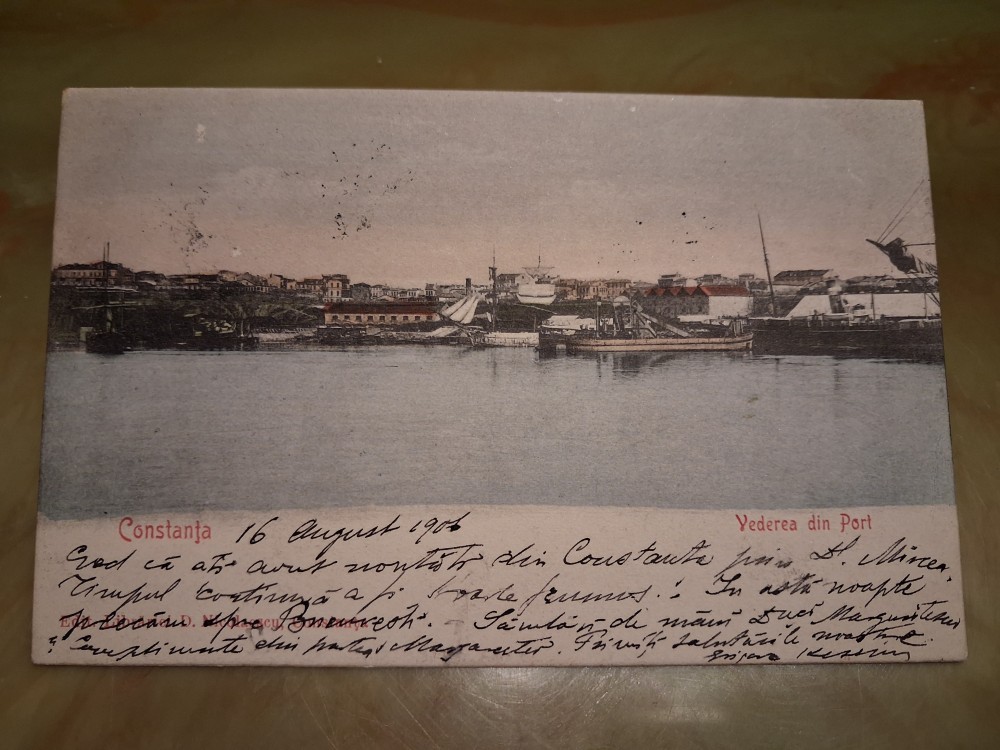 Constanța 16 August 1906 Vederea din Port
Cred că ați avut noutăți din Constanta prin Dl. Mircea
Timpul continuă a fi foarte frumos! In astă noapte
plecăm spre București. Sâmbătă de mâni
Complimente din partea Margaretei. Primiți salutările noastre